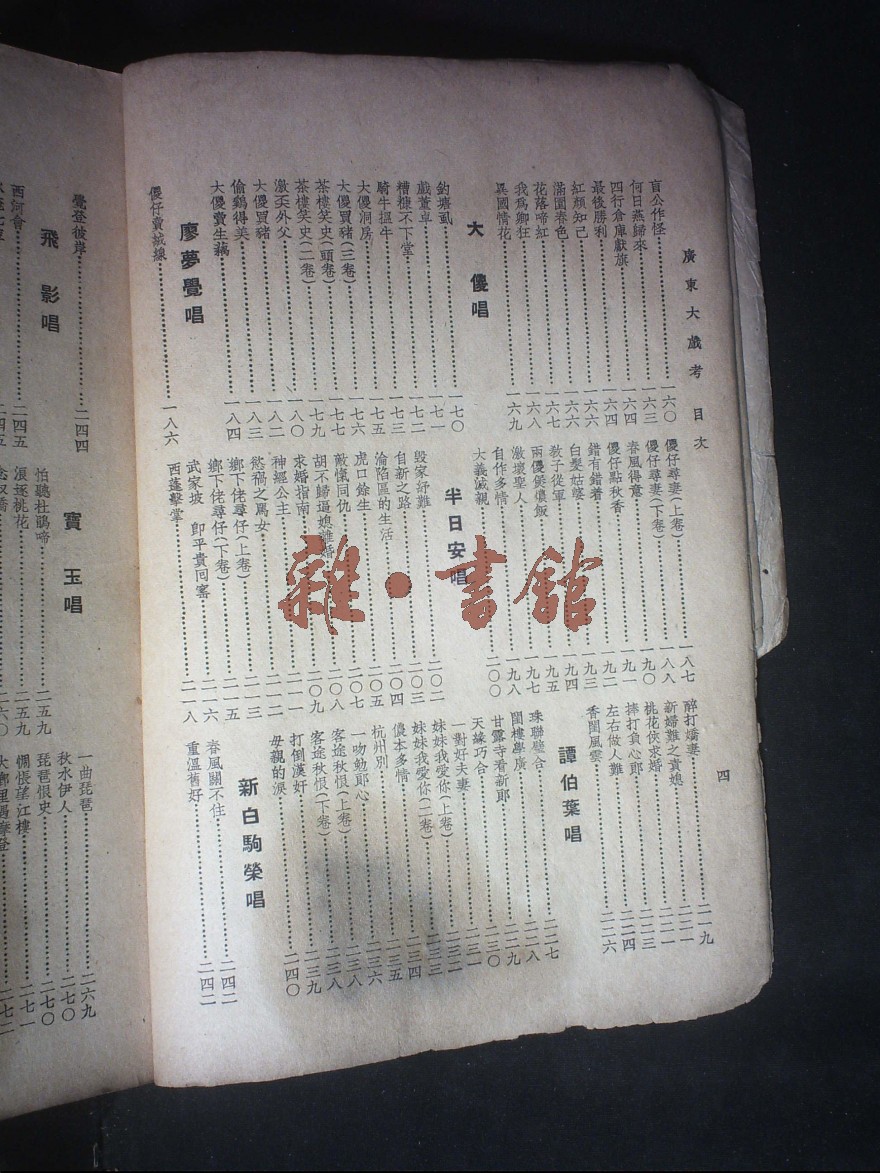 廣東大戲考 目次
四
盲公作怪……一六〇
何日燕歸來……一六三
四行倉庫獻旗……一六四
最後勝利……一六四
紅顏知己……一六六
滿園春色……一六六
花落啼紅……一六七
我為卿狂……一六八
異國情花……一六九
大傻唱
釣塘虱……一七〇
戲董卓……一七一
糟糠不下堂……一七二
騎牛搵牛……一七三
大傻洞房……一七五
大傻買豬(三卷)……一七六
茶樓笑史(頭卷)……一七七
茶樓笑史(二卷)……一七九
激死外父……一八〇
大傻買豬……一八二
偷鷄得美……一八三
大傻賣生藕……一八四
廖夢覺唱
傻仔賣絨線……一八六
傻仔尋妻(上卷)……一八七
傻仔尋妻(下卷)……一八八
春風得意……一九〇
傻仔點秋香……一九一
錯有錯着……一九二
白髮姑婆……一九三
教子從軍……一九四
兩傻餸儂飯……一九五
激壞聖人……一九七
自作多情……一九八
大義誠親……二〇〇
半日安唱
毀家紓難……二〇二
自新之路……二〇三
淪陷區的生活……二〇四
虎口餘生……二〇五
敵愾同仇……二〇七
胡不歸逼媳離婚……二〇八
求婚指南……二〇九
神經公主……二一一
慾禍之罵女……二一二
鄉下佬尋仔(上卷)……二一三
鄉下佬尋仔(下卷)……二一五
武家坡 即平貴回窰……二一六
西蓬擊掌……二一八
醉打嬌妻……二一九
新婦難之責媳……二二一
桃花俠求婚……二二一
捧打負心郎……二二三
左右做人難……二二四
香閨風雲……二二六
譚伯葉唱
珠聯璧合……二二七
閨樓學廣……二二八
甘露寺看新郎……二二九
天緣巧合……二三〇
一對好夫妻……二三二
妹妹我愛你(上卷)……二三三
妹妹我愛你(二卷)……二三四
儂本多情……二三五
杭州別……二三六
一吻勉郎心……二三八
客途秋恨(上卷)……二三八
客途秋恨(下卷)……二三九
打倒漢奸……二三九
母親的淚……二四〇
新白駒榮唱
春風關不住……二四二
重溫舊好……二四二
覺登彼岸……二四四
飛影唱
西河會……二四五
寶玉唱
怕聽杜鵑啼……二五九
浪逐桃花……二五九
一曲琵琶……二六九
秋水伊人……二七〇
琵琶恨史……二七〇
惆悵望江樓……二七一
雜·書館